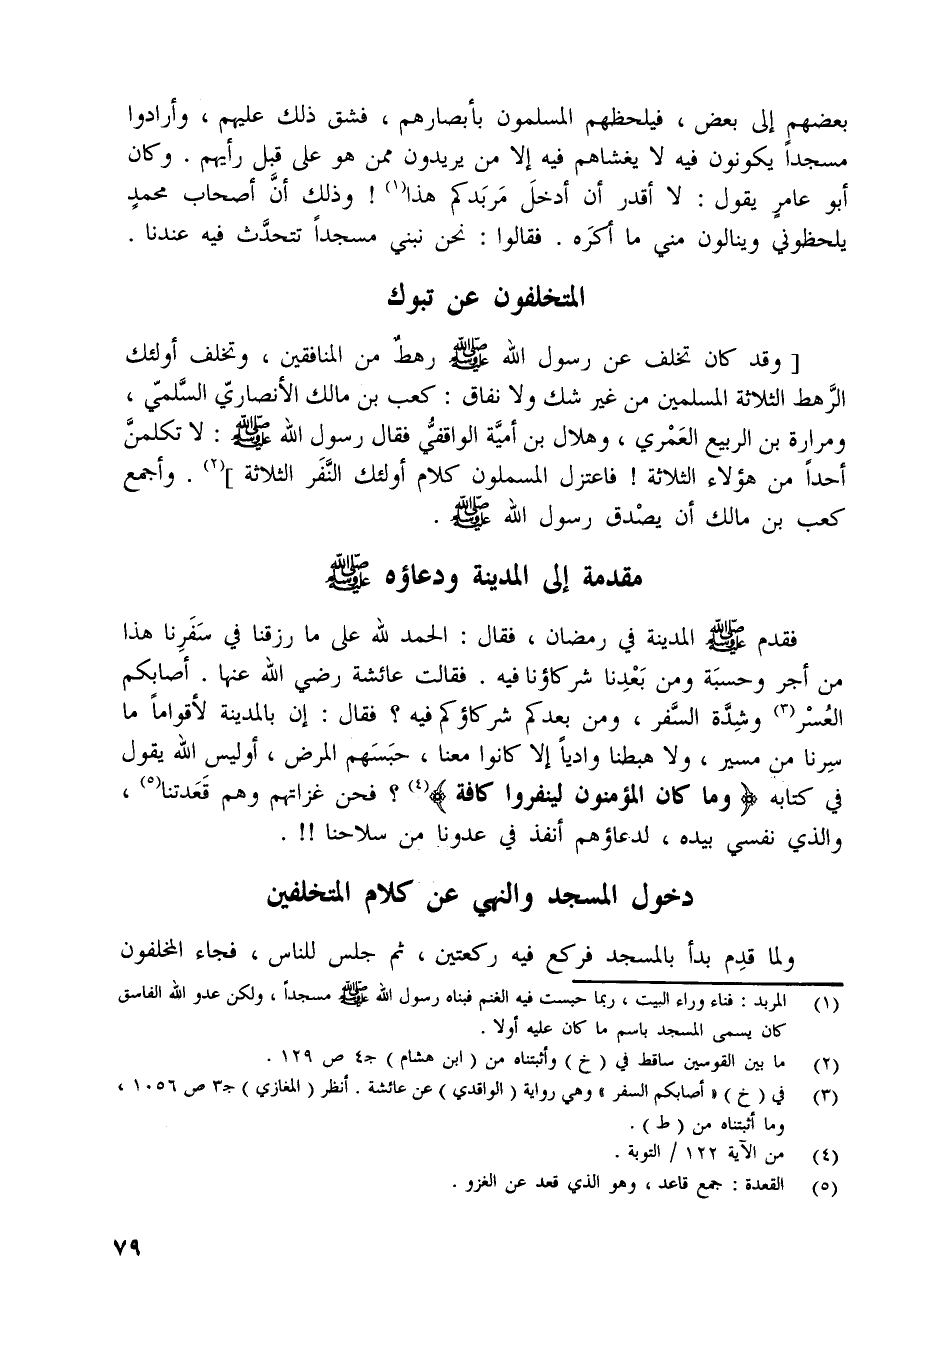 بعضهم إلى بعض ، فيلحظهم المسلمون بأبصارهم ، فشق ذلك عليهم ، وأرادوا
مسجداً يكونون فيه لا يغشاهم فيه إلا من يريدون ممن هو على قبل رأيهم . وكان
أبو عامرٍ يقول : لا أقدر أن أدخلَ مَربَدكم هذا(١) ! وذلك أنَّ أصحاب محمدٍ
يلحظوني وينالون مني ما أكرَه . فقالوا : نحن نبني مسجداً تتحدَّث فيه عندنا .
المتخلفون عن تبوك
[ وقد كان تخلف عن رسول الله ﷺ رهطٌ من المنافقين ، وتخلف أولئك
الرَّهط الثلاثة المسلمين من غير شك ولا نفاق : كعب بن مالك الأنصاريّ السَّلميّ ،
ومرارة بن الربيع العَمْري ، وهلال بن أميَّة الواقفيُّ فقال رسول الله ﷺ : لا تكلمنَّ
أحداً من هؤلاء الثلاثة ! فاعتزل المسملون كلام أولئك النَّفَر الثلاثة ](٢) . وأجمع
كعب بن مالك أن يصْدق رسول الله ﷺ .
مقدمة إلى المدينة ودعاؤه ﷺ
فقدم ﷺ المدينة في رمضان ، فقال : الحمد لله على ما رزقنا في سَفَرِنا هذا
من أجر وحسبَة ومن بَعْدِنا شركاؤنا فيه . فقالت عائشة رضي الله عنها . أصابكم
العُسْر(٣) وشِدَّة السَّفر ، ومن بعدكم شركاؤكم فيه ؟ فقال : إن بالمدينة لأقواماً ما
سِرنا من مسير ، ولا هبطنا وادياً إلا كانوا معنا ، حبَسَهم المرض ، أوليس الله يقول
في كتابه ﴿ وما كان المؤمنون لينفروا كافة ﴾(٤) ؟ فحن غزاتهم وهم قَعَدتنا(٥) ،
والذي نفسي بيده ، لدعاؤهم أنفذ في عدونا من سلاحنا !! .
دخول المسجد والنهي عن كلام المتخلفين
ولما قدِم بدأ بالمسجد فركع فيه ركعتين ، ثم جلس للناس ، فجاء المخلفون
(١) المربد : فناء وراء البيت ، ربما حبست فيه الغنم فبناه رسول الله ﷺ مسجداً ، ولكن عدو الله الفاسق
كان يسمى المسجد باسم ما كان عليه أولا .
(٢) ما بين القوسين ساقط في ( خ ) وأثبتناه من ( ابن هشام ) جـ٤ ص ١٢٩ .
(٣) في ( خ ) « أصابكم السفر » وهي رواية ( الواقدي ) عن عائشة . أنظر ( المغازي ) جـ٣ ص ١٠٥٦ ،
وما أثبتناه من ( ط ) .
(٤) من الآية ١٢٢ / التوبة .
(٥) القعدة : جمع قاعد ، وهو الذي قعد عن الغزو .
٧٩